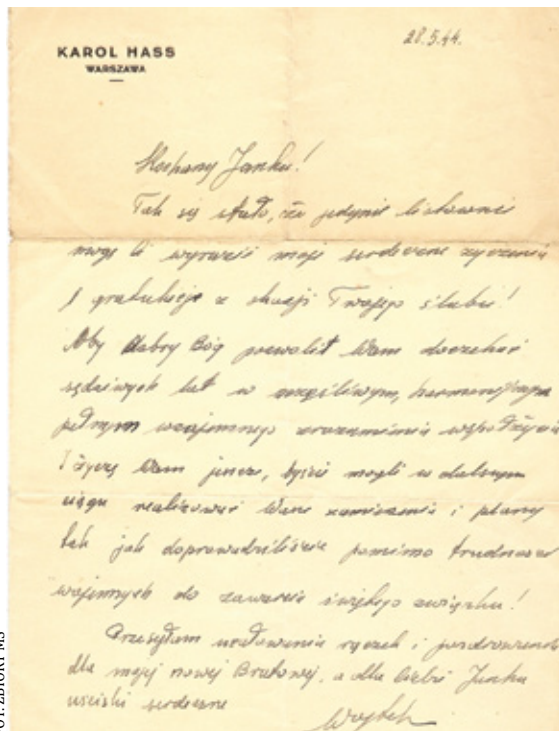 KAROL HASS
WARSZAWA
28.5.44.
Kochany Janku!
Tak się stało, że jedynie listownie
mogę Ci wyrazić moje serdeczne życzenia
i gratulacje z okazji Twojego ślubu!
Aby dobry Bóg pozwolił Wam doczekać
sędziwych lat w szczęśliwym, harmonijnym
pełnym wzajemnego zrozumienia współżyciu
Życzę Wam jeszcze, byście mogli w dalszym
ciągu realizować Wasze zamierzenia i plany
tak jak doprowadziliście pomimo trudności
wojennych do zawarcia świętego związku!
Przesyłam ucałowania rączek i pozdrowienia
dla mojej nowej Bratowej, a dla Ciebie Janku
uściski serdeczne
Wojtek
FOT. ZBIORY MS